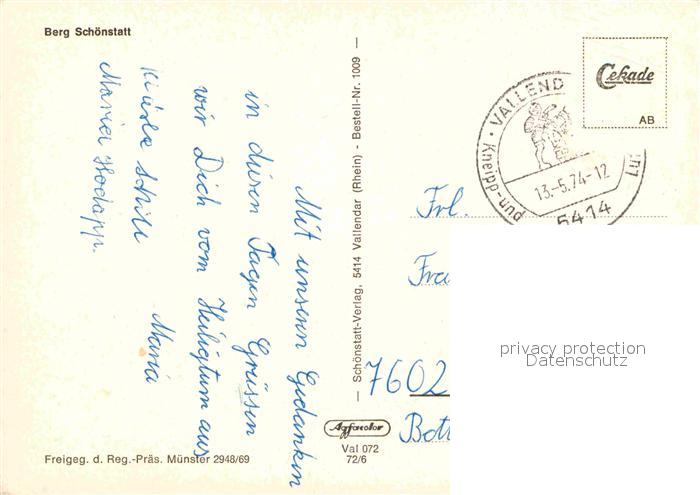 Berg Schönstatt
Mit unseren Gedanken
in diesen Tagen Grüssen
wir Dich vom Heiligtum aus
Maria
Maria Hodapp.
Schönstatt-Verlag, 5414 Vallendar (Rhein) - Bestell-Nr. 1009
Cekade
AB
VALLEND
Kneipp-und
Luf
13.-5.74-12
5414
Frl.
7602
Agfacolor
Val 072
72/6
Freigeg. d. Reg.-Präs. Münster 2948/69
privacy protection
Datenschutz